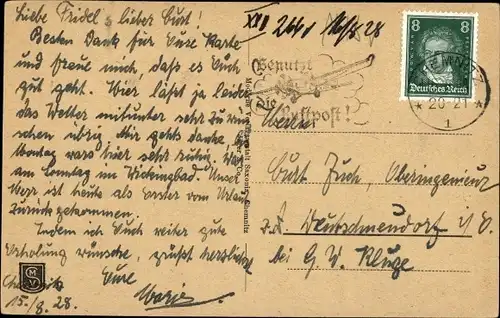 Liebe Fridel, lieber Curt!
Besten Dank für Eure Karte
und freue mich, daß es Euch
gut geht. Hier läßt ja leider
das Wetter mitunter sehr zu wün-
schen übrig. Mir gehts danke,
Montag wars hier sehr ruhig, War
am Sonntag im Wickingbad. Unser
Herr ist heute als Erster vom Urlaub
zurückgekommen.
Indem ich Euch weiter gute
Erholung wünsche, grüßt herzlichst
Eure
Marie
15./8. 28.
MV
16/8 28
Benutzt
Die
Luftpost!
8 8
Deutsches Reich
CHEMNITZ
* 20-21 *
1
Curt Zuch, Oberingenieur
z. Z. Deutschmendorf
bei G. W. Kluge